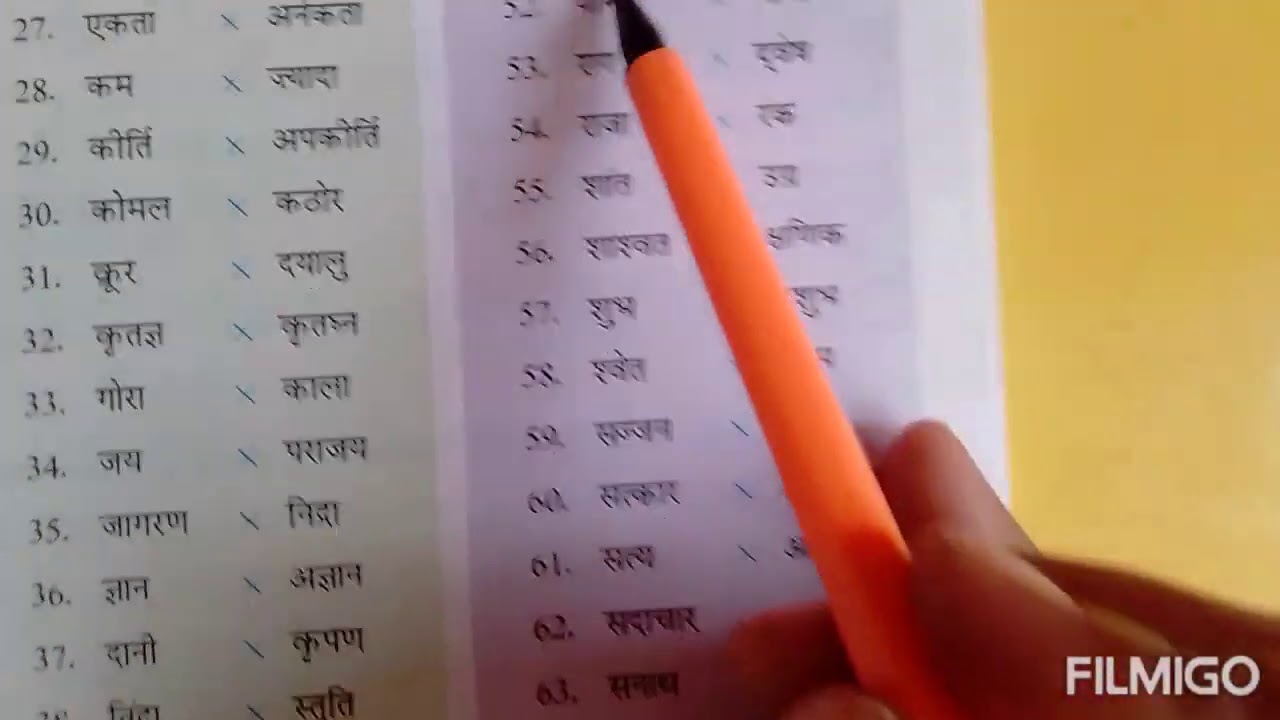 27. एकता \ अनेकता
28. कम \ ज्यादा
29. कीर्ति \ अपकीर्ति
30. कोमल \ कठोर
31. क्रूर \ दयालु
32. कृतज्ञ \ कृतघ्न
33. गोरा \ काला
34. जय \ पराजय
35. जागरण \ निद्रा
36. ज्ञान \ अज्ञान
37. दानी \ कृपण
38. निंदा \ स्तुति
52.
53. \ द्वेष
54. राजा \ रंक
55. शांत उग्र
56. शाश्वत क्षणिक
57. शुभ शुभ
58. श्वेत
59. सज्जन \
60. सत्कार \
61. सत्य \ अ
62. सदाचार
63. सनाथ
FILMIGO